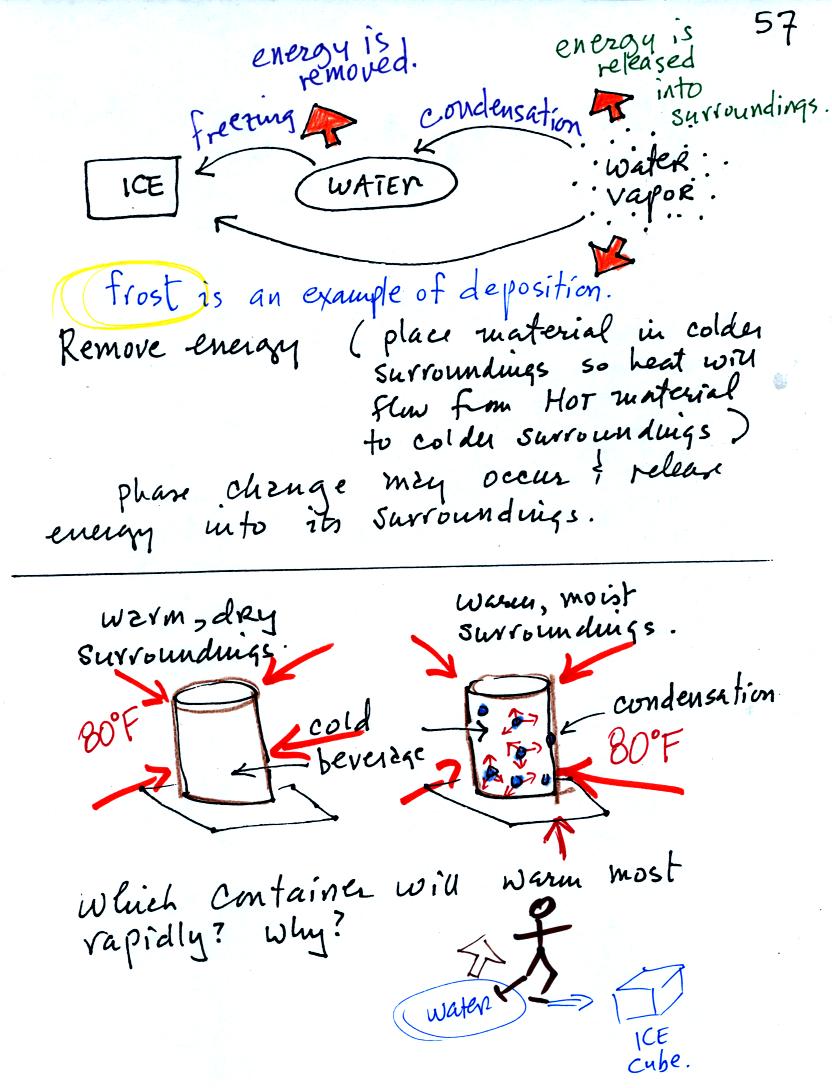 57
energy is
removed.
energy is
released
into
surroundings.
freezing
condensation
ICE
WATER
water
vapor
frost is an example of deposition.
Remove energy ( place material in colder
surroundings so heat will
flow from HOT material
to colder surroundings )
phase change may occur & release
energy into its surroundings.
warm, dry
surroundings.
warm, moist
surroundings.
80°F
cold
beverage
condensation
80°F
Which container will warm most
rapidly? why?
water
ICE
cube.